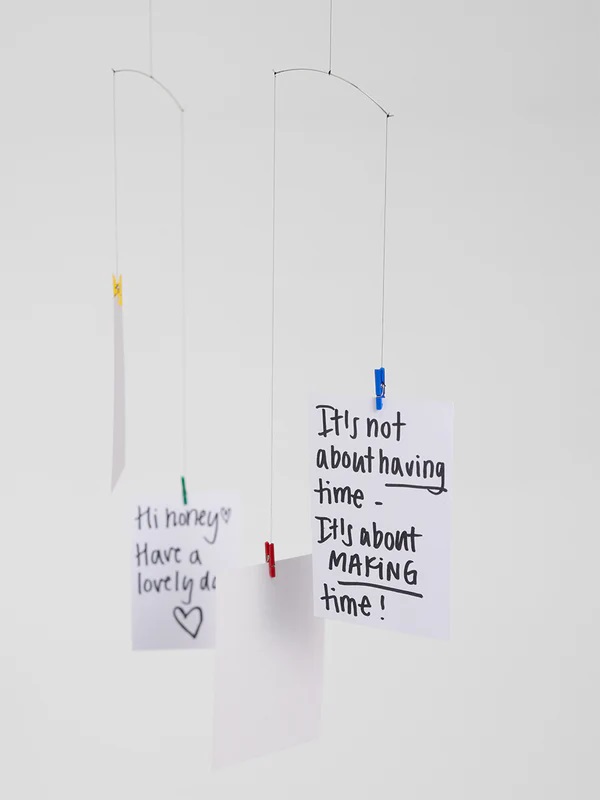 Hi honey♡
Have a
lovely
It's not
about having
time -
It's about
MAKING
time!